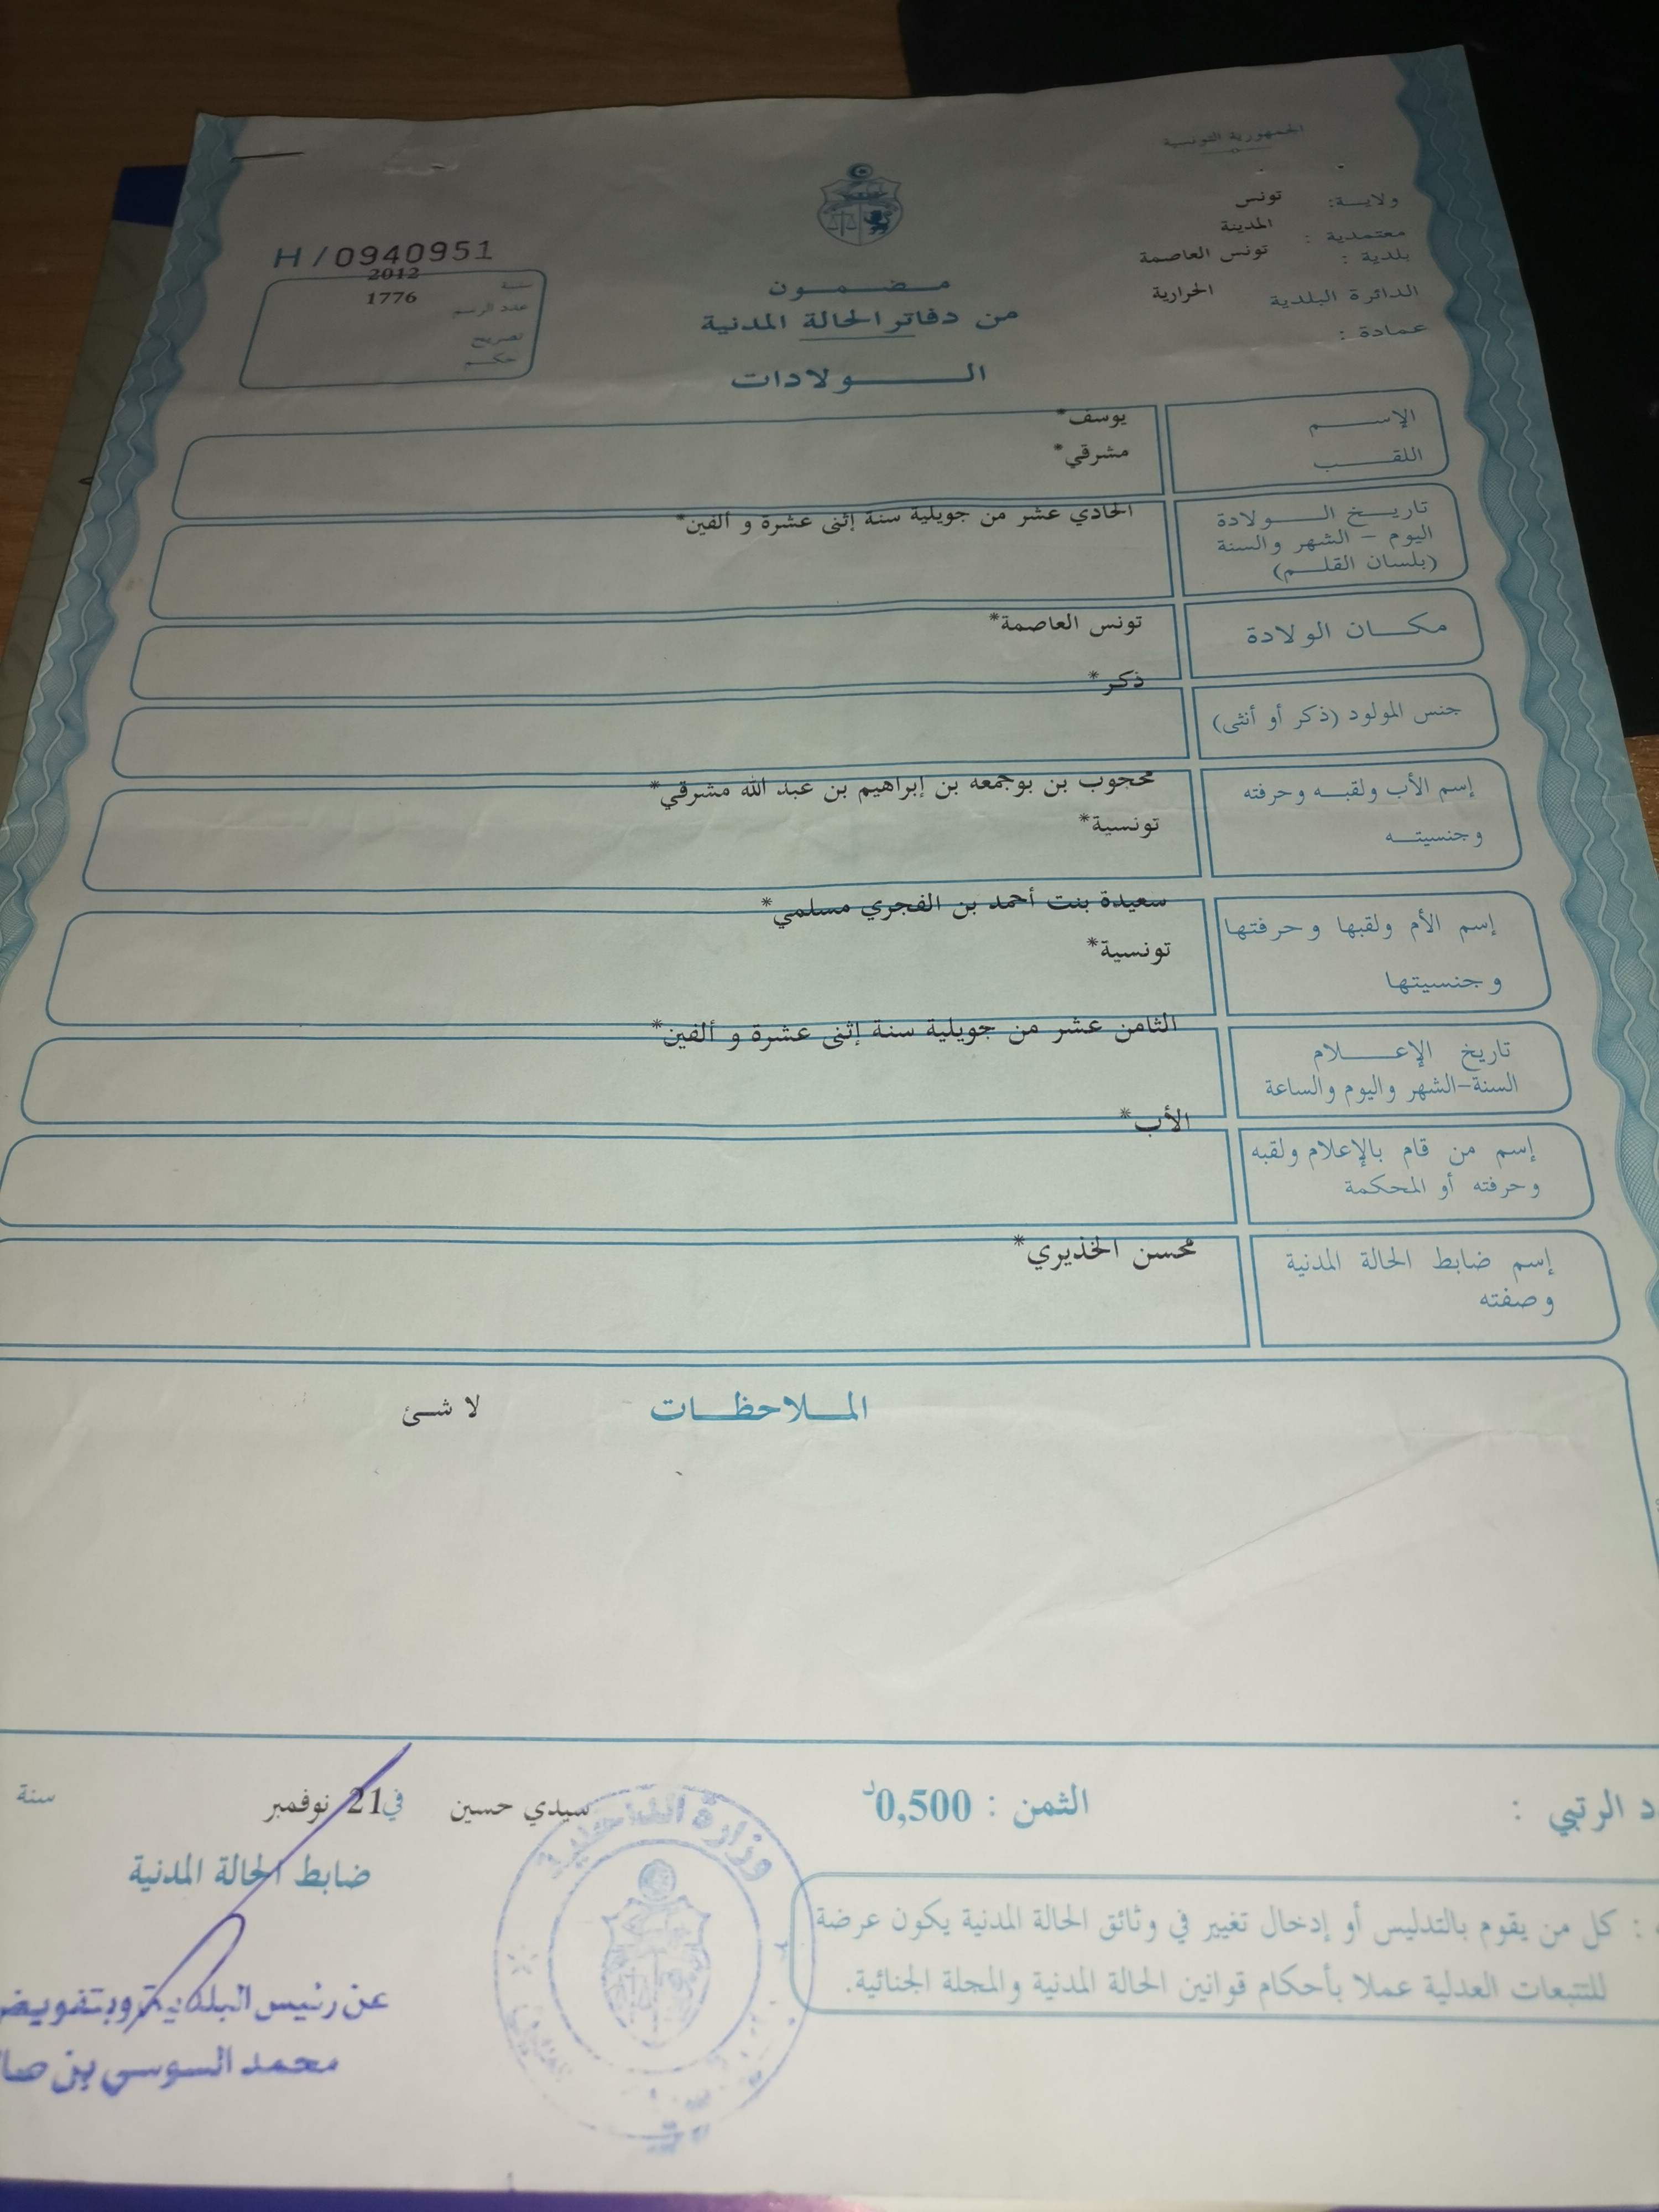 الجمهورية التونسية
ولاية: تونس
معتمدية : المدينة
بلدية : تونس العاصمة
الدائرة البلدية الحرايرية
عمادة :
مضمون
من دفاتر الحالة المدنية
الولادات
H/0940951
سنة 2012
عدد الرسم 1776
تصريح
حكم
الإسم يوسف*
اللقب مشرقي*
تاريخ الولادة
اليوم - الشهر والسنة
(بلسان القلم)
الحادي عشر من جويلية سنة إثنى عشرة و ألفين*
مكان الولادة تونس العاصمة*
جنس المولود (ذكر أو أنثى) ذكر*
إسم الأب ولقبه وحرفته
وجنسيته
محجوب بن بوجمعه بن إبراهيم بن عبد الله مشرقي*
تونسية*
إسم الأم ولقبها وحرفتها
وجنسيتها
سعيدة بنت أحمد بن الفجري مسلمي*
تونسية*
تاريخ الإعلام
السنة-الشهر واليوم والساعة
الثامن عشر من جويلية سنة إثنى عشرة و ألفين*
إسم من قام بالإعلام ولقبه
وحرفته أو المحكمة
الأب*
إسم ضابط الحالة المدنية
وصفته
محسن الخذيري*
الملاحظات لا شئ
د الرتبي :
الثمن : 0,500د
سيدي حسين في 21 نوفمبر سنة
ضابط الحالة المدنية
: كل من يقوم بالتدليس أو إدخال تغيير في وثائق الحالة المدنية يكون عرضة
للتتبعات العدلية عملا بأحكام قوانين الحالة المدنية والمجلة الجنائية.
وزارة الداخلية
عن رئيس البلدية وبتفويض
محمد السوسي بن صا